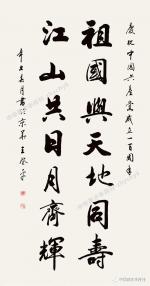 慶祝中國共產黨成立一百周年
祖國興天地同壽
江山共日月齊輝
辛丑春月書於京華王登平